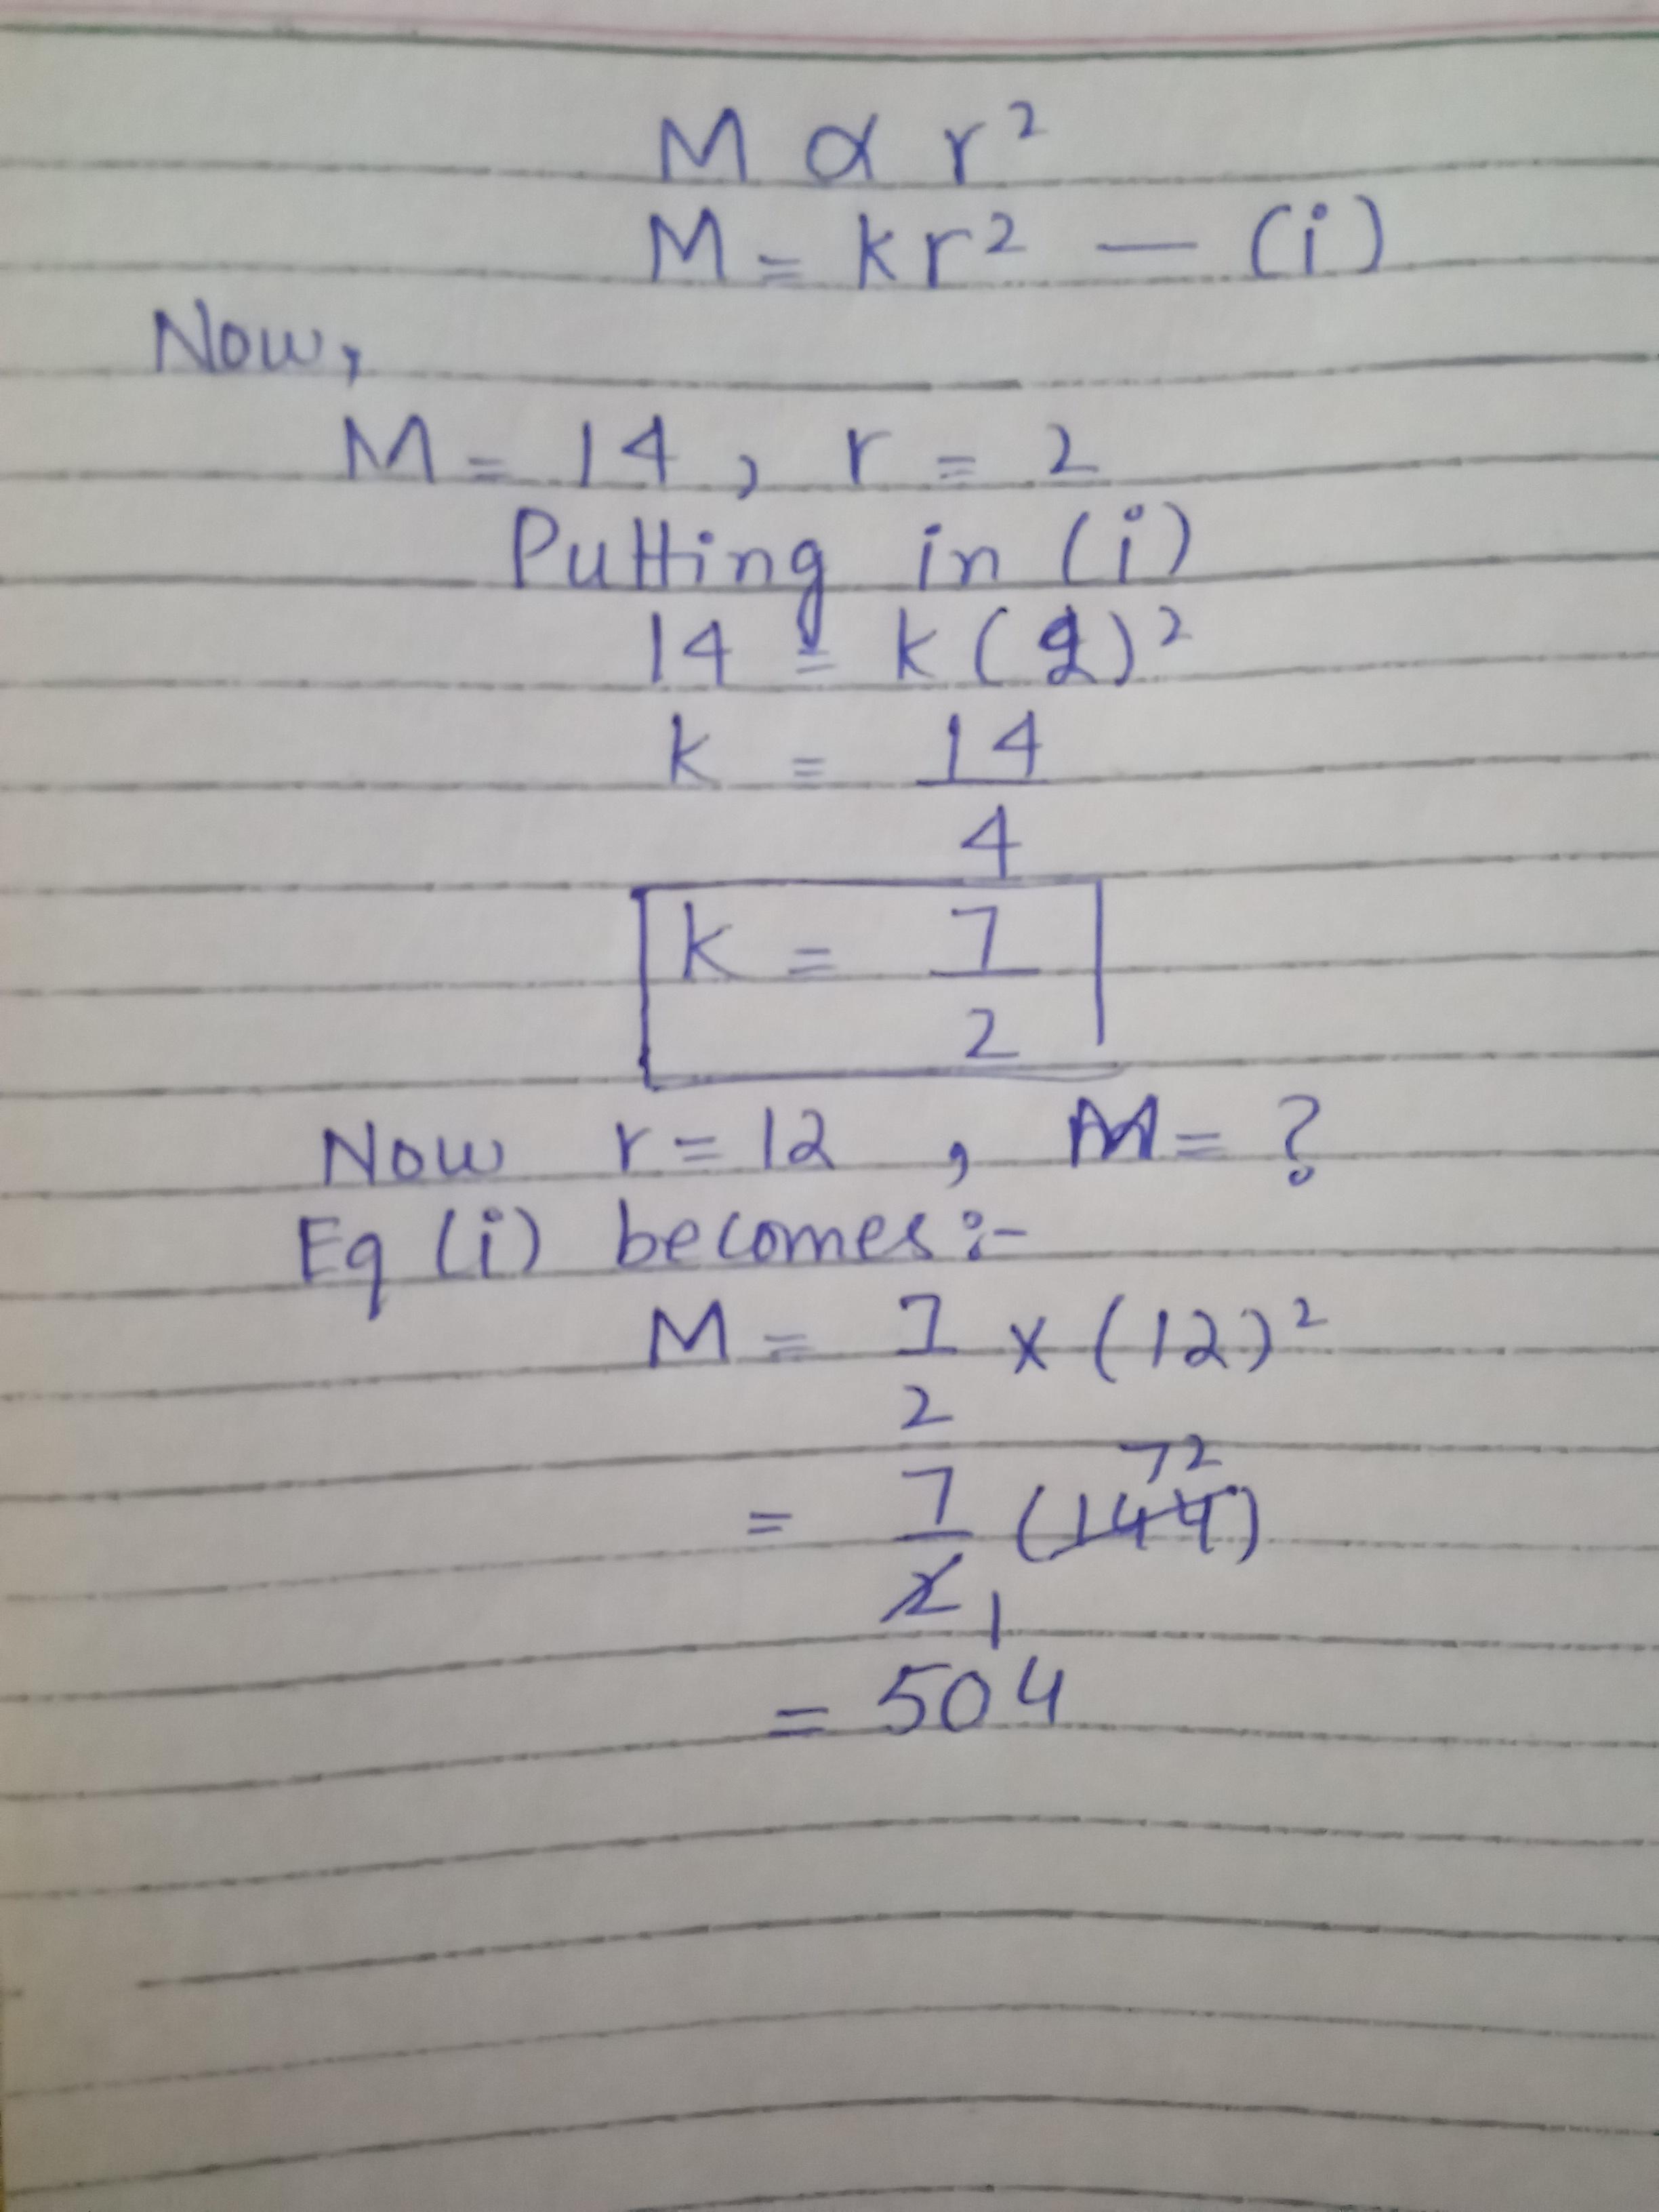 M ∝ r²
M = kr² — (i)
Now,
M = 14, r = 2
Putting in (i)
14 = k(2)²
k = 14/4
k = 7/2
Now r = 12, M = ?
Eq (i) becomes:-
M = 7/2 x (12)²
= 7/2 (144) 72 1
= 504